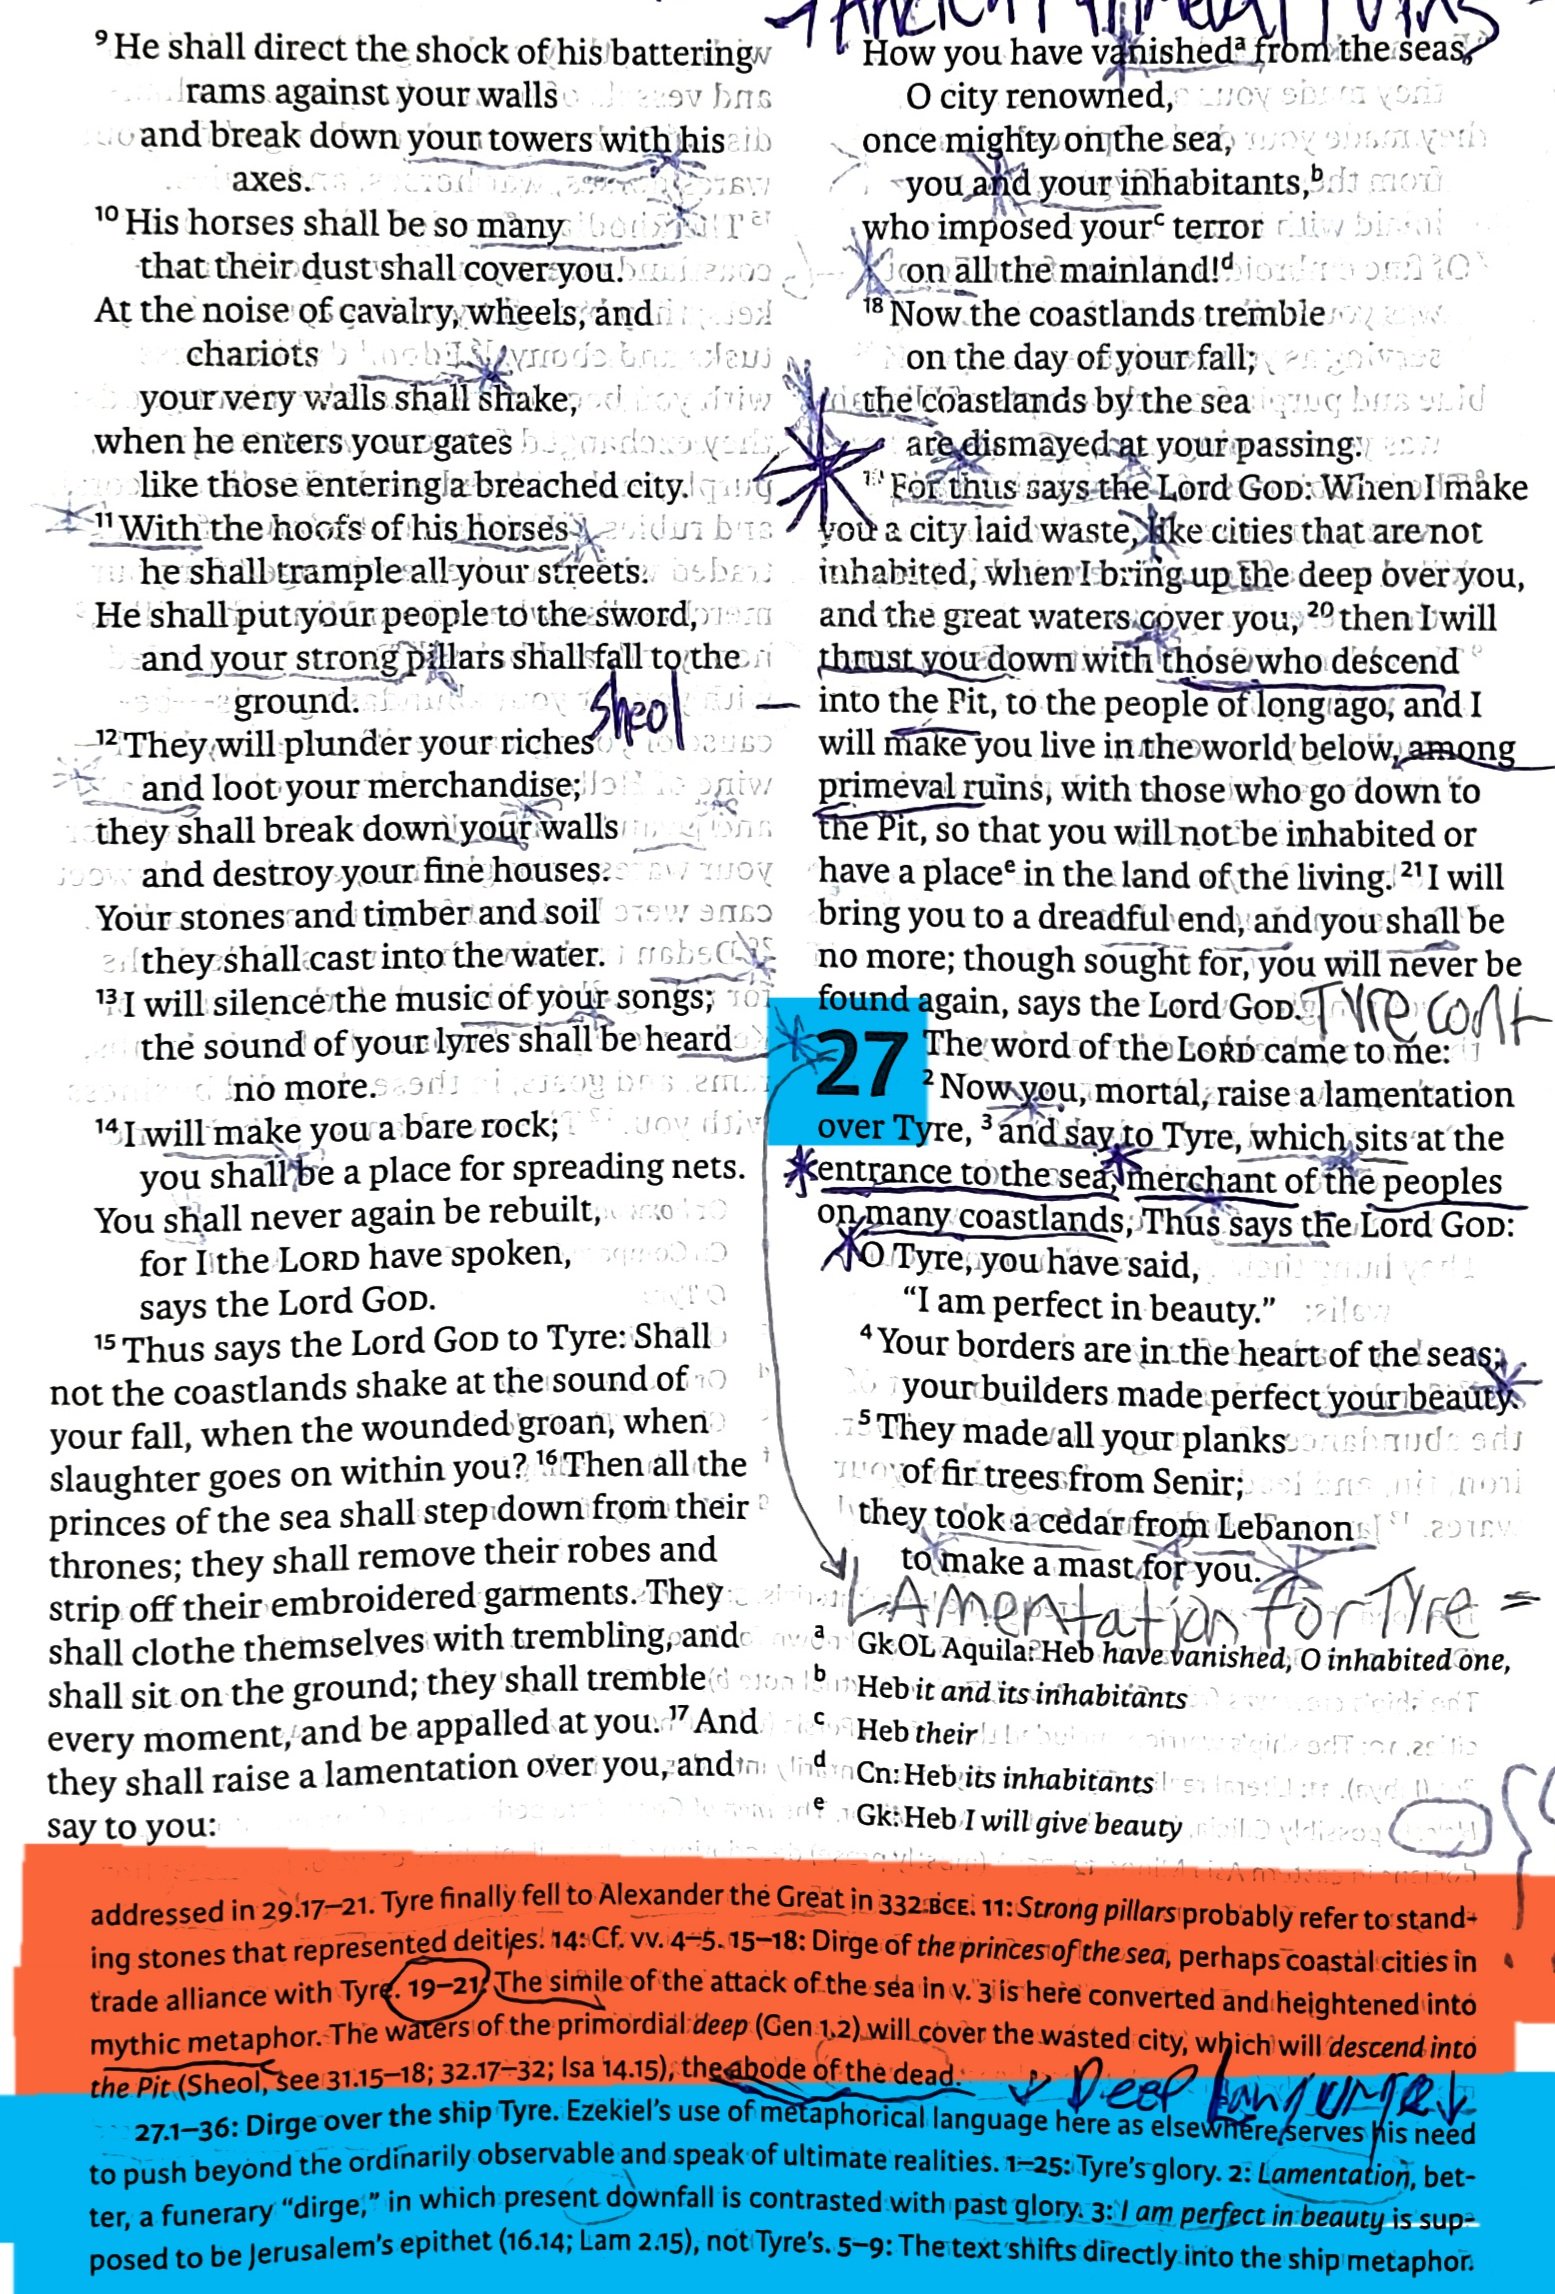 9 He shall direct the shock of his battering
rams against your walls
and break down your towers with his
axes.
10 His horses shall be so many
that their dust shall cover you.
At the noise of cavalry, wheels, and
chariots
your very walls shall shake,
when he enters your gates
like those entering a breached city.
11 With the hoofs of his horses
he shall trample all your streets.
He shall put your people to the sword,
and your strong pillars shall fall to the
ground.
Sheol —
12 They will plunder your riches
and loot your merchandise;
they shall break down your walls
and destroy your fine houses.
Your stones and timber and soil
they shall cast into the water.
13 I will silence the music of your songs;
the sound of your lyres shall be heard
no more.
14 I will make you a bare rock;
you shall be a place for spreading nets.
You shall never again be rebuilt,
for I the LORD have spoken,
says the Lord GOD.
15 Thus says the Lord GOD to Tyre: Shall
not the coastlands shake at the sound of
your fall, when the wounded groan, when
slaughter goes on within you? 16 Then all the
princes of the sea shall step down from their
thrones; they shall remove their robes and
strip off their embroidered garments. They
shall clothe themselves with trembling, and
shall sit on the ground; they shall tremble
every moment, and be appalled at you. 17 And
they shall raise a lamentation over you, and
say to you:
How you have vanished a from the seas,
O city renowned,
once mighty on the sea,
you and your inhabitants, b
who imposed your c terror
on all the mainland! d
18 Now the coastlands tremble
on the day of your fall;
the coastlands by the sea
are dismayed at your passing.
19 For thus says the Lord GOD: When I make
you a city laid waste, like cities that are not
inhabited, when I bring up the deep over you,
and the great waters cover you, 20 then I will
thrust you down with those who descend
into the Pit, to the people of long ago, and I
will make you live in the world below, among
primeval ruins, with those who go down to
the Pit, so that you will not be inhabited or
have a place e in the land of the living. 21 I will
bring you to a dreadful end, and you shall be
no more; though sought for, you will never be
found again, says the Lord GOD.
Tyre cont
27 The word of the LORD came to me:
2 Now you, mortal, raise a lamentation
over Tyre, 3 and say to Tyre, which sits at the
entrance to the sea, merchant of the peoples
on many coastlands, Thus says the Lord GOD:
O Tyre, you have said,
“I am perfect in beauty.”
4 Your borders are in the heart of the seas;
your builders made perfect your beauty.
5 They made all your planks
of fir trees from Senir;
they took a cedar from Lebanon
to make a mast for you.
LAmentation for Tyre =
a Gk OL Aquila: Heb have vanished, O inhabited one,
b Heb it and its inhabitants
c Heb their
d Cn: Heb its inhabitants
e Gk: Heb I will give beauty
addressed in 29.17–21. Tyre finally fell to Alexander the Great in 332 BCE. 11: Strong pillars probably refer to stand-
ing stones that represented deities. 14: Cf. vv. 4–5. 15–18: Dirge of the princes of the sea, perhaps coastal cities in
trade alliance with Tyre. 19–21: The simile of the attack of the sea in v. 3 is here converted and heightened into
mythic metaphor. The waters of the primordial deep (Gen 1.2) will cover the wasted city, which will descend into
the Pit (Sheol, see 31.15–18; 32.17–32; Isa 14.15), the abode of the dead.
Deep Language
27.1–36: Dirge over the ship Tyre. Ezekiel’s use of metaphorical language here as elsewhere serves his need
to push beyond the ordinarily observable and speak of ultimate realities. 1–25: Tyre’s glory. 2: Lamentation, bet-
ter, a funerary “dirge,” in which present downfall is contrasted with past glory. 3: I am perfect in beauty is sup-
posed to be Jerusalem’s epithet (16.14; Lam 2.15), not Tyre’s. 5–9: The text shifts directly into the ship metaphor.